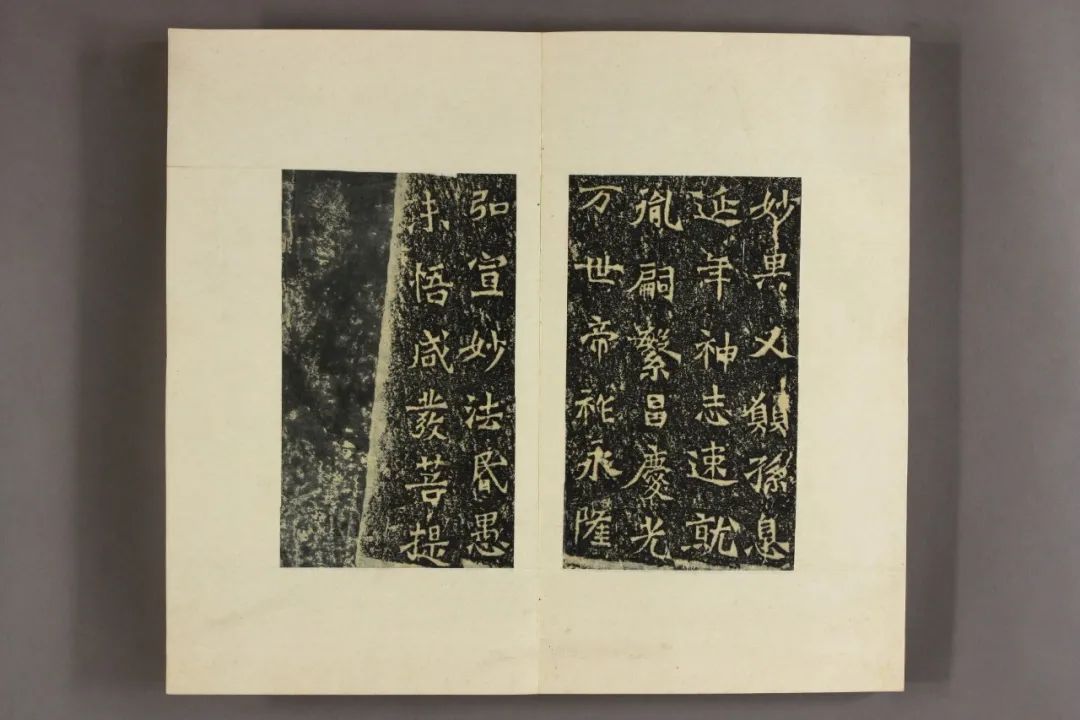 妙果又願孫息
延年神志速就
胤嗣繁昌慶光
万世帝祚永隆
弘宣妙法昏愚
未悟咸發菩提